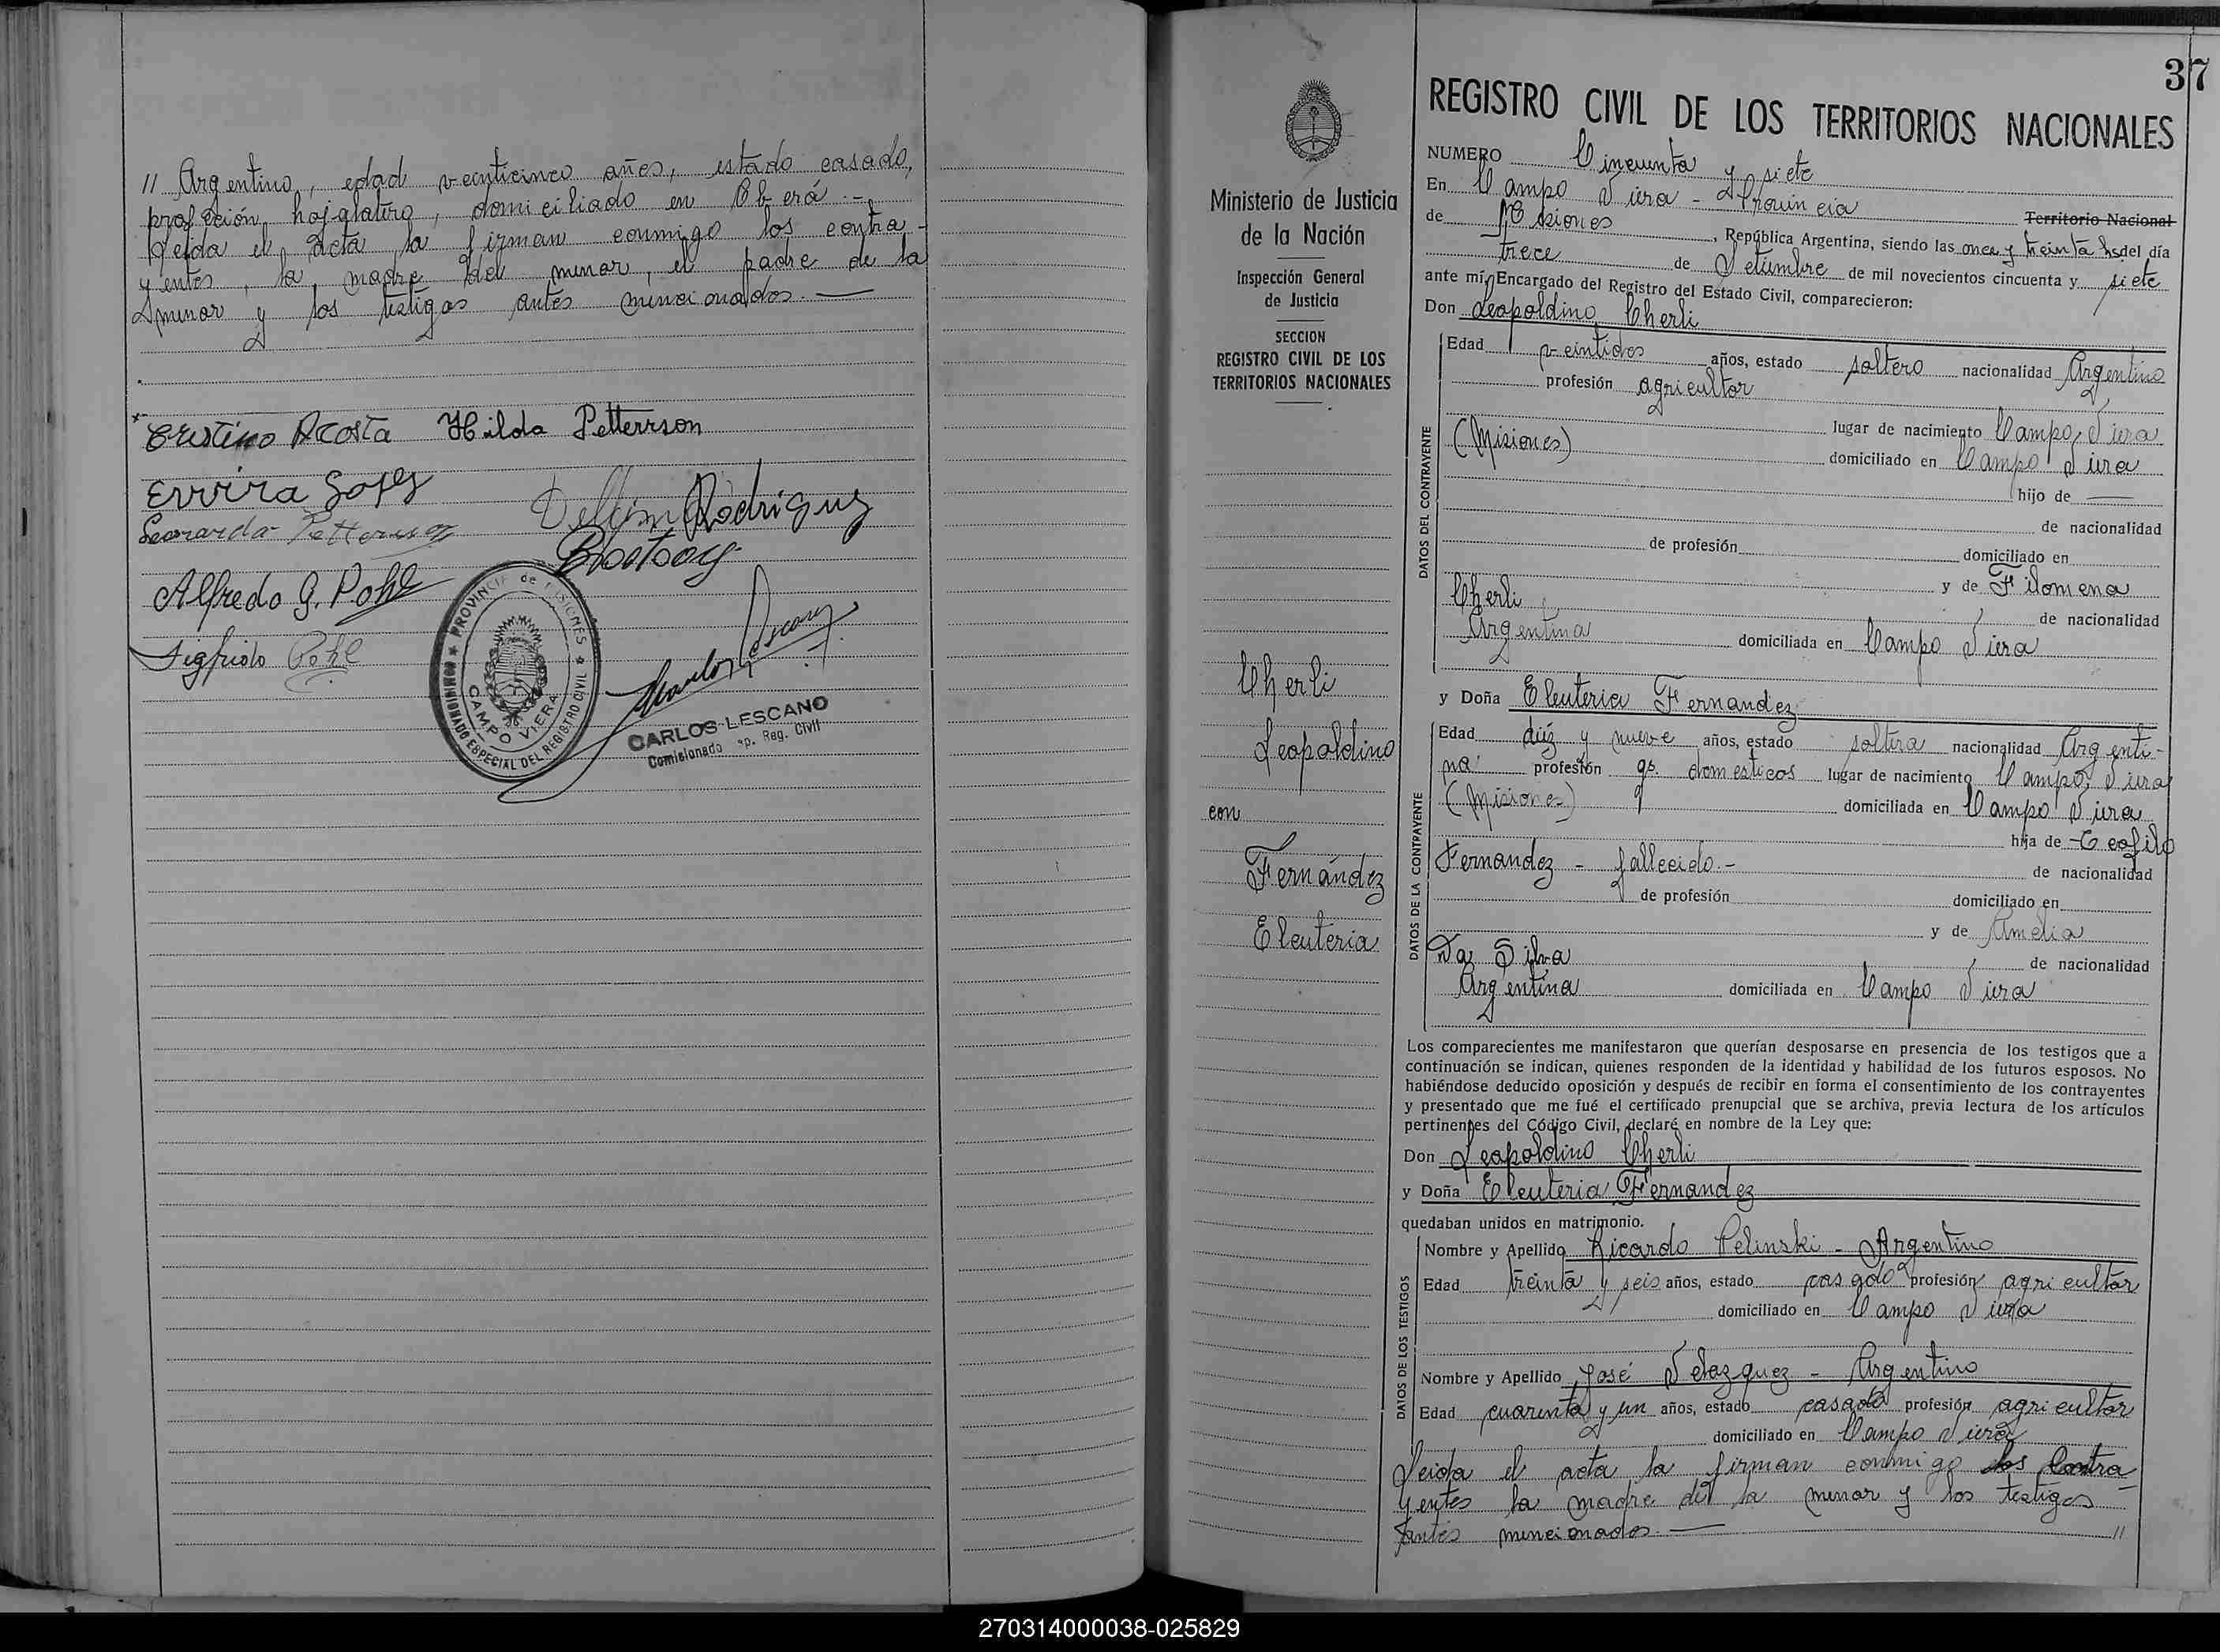 // Argentino, edad veinticinco años, estado casado,
profesión hojalatero, domiciliado en Oberá.-
Leida el acta la firman conmigo los contra-
yentes, la madre del menor, el padre de la
menor y los testigos antes mencionados.—
Cristino Acosta Hilda Petterrson
Delfin Rodriguez
Alfredo G. Pohl
Sigfrido Pohl
PROVINCIA de MISIONES
COMISIONADO ESPECIAL DEL REGISTRO CIVIL
CAMPO VIERA
CARLOS LESCANO
Comisionado Reg. Civil
37
Ministerio de Justicia
de la Nación
Inspección General
de Justicia
SECCION
REGISTRO CIVIL DE LOS
TERRITORIOS NACIONALES
Cherli
Leopoldino
con
Fernández
Eleuteria
REGISTRO CIVIL DE LOS TERRITORIOS NACIONALES
NUMERO Cincuenta y siete
En Campo Viera - Provincia
de Misiones Territorio Nacional
, República Argentina, siendo las once y treinta hs del día
trece de Setiembre de mil novecientos cincuenta y siete
ante mí, Encargado del Registro del Estado Civil, comparecieron:
Don Leopoldino Cherli
DATOS DEL CONTRAYENTE
Edad veintidos años, estado soltero nacionalidad Argentino
profesión agricultor
lugar de nacimiento Campo Viera
(Misiones) domiciliado en Campo Viera
hijo de —
de nacionalidad
de profesión domiciliado en
y de Filomena
Cherli de nacionalidad
Argentina domiciliada en Campo Viera
y Doña Eleuteria Fernandez
DATOS DE LA CONTRAYENTE
Edad diéz y nueve años, estado soltera nacionalidad Argenti-
na profesión qs. domesticos lugar de nacimiento Campo Viera
(Misiones) domiciliada en Campo Viera
hija de Teofilo
Fernandez - fallecido.- de nacionalidad
de profesión domiciliado en
y de Amelia
Da Silva de nacionalidad
Argentina domiciliada en Campo Viera
Los comparecientes me manifestaron que querían desposarse en presencia de los testigos que a
continuación se indican, quienes responden de la identidad y habilidad de los futuros esposos. No
habiéndose deducido oposición y después de recibir en forma el consentimiento de los contrayentes
y presentado que me fué el certificado prenupcial que se archiva, previa lectura de los artículos
pertinentes del Código Civil, declaré en nombre de la Ley que:
Don Leopoldino Cherli
y Doña Eleuteria Fernandez
quedaban unidos en matrimonio.
DATOS DE LOS TESTIGOS
Nombre y Apellido Ricardo Pelinski - Argentino
Edad treinta y seis años, estado casado profesión agricultor
domiciliado en Campo Viera
Nombre y Apellido José Velazquez - Argentino
Edad cuarenta y un años, estado casado profesión agricultor
domiciliado en Campo Viera
Leida el acta la firman conmigo los Contra-
yentes la madre de la menor y los testigos
antes mencionados.— //
270314000038-025829